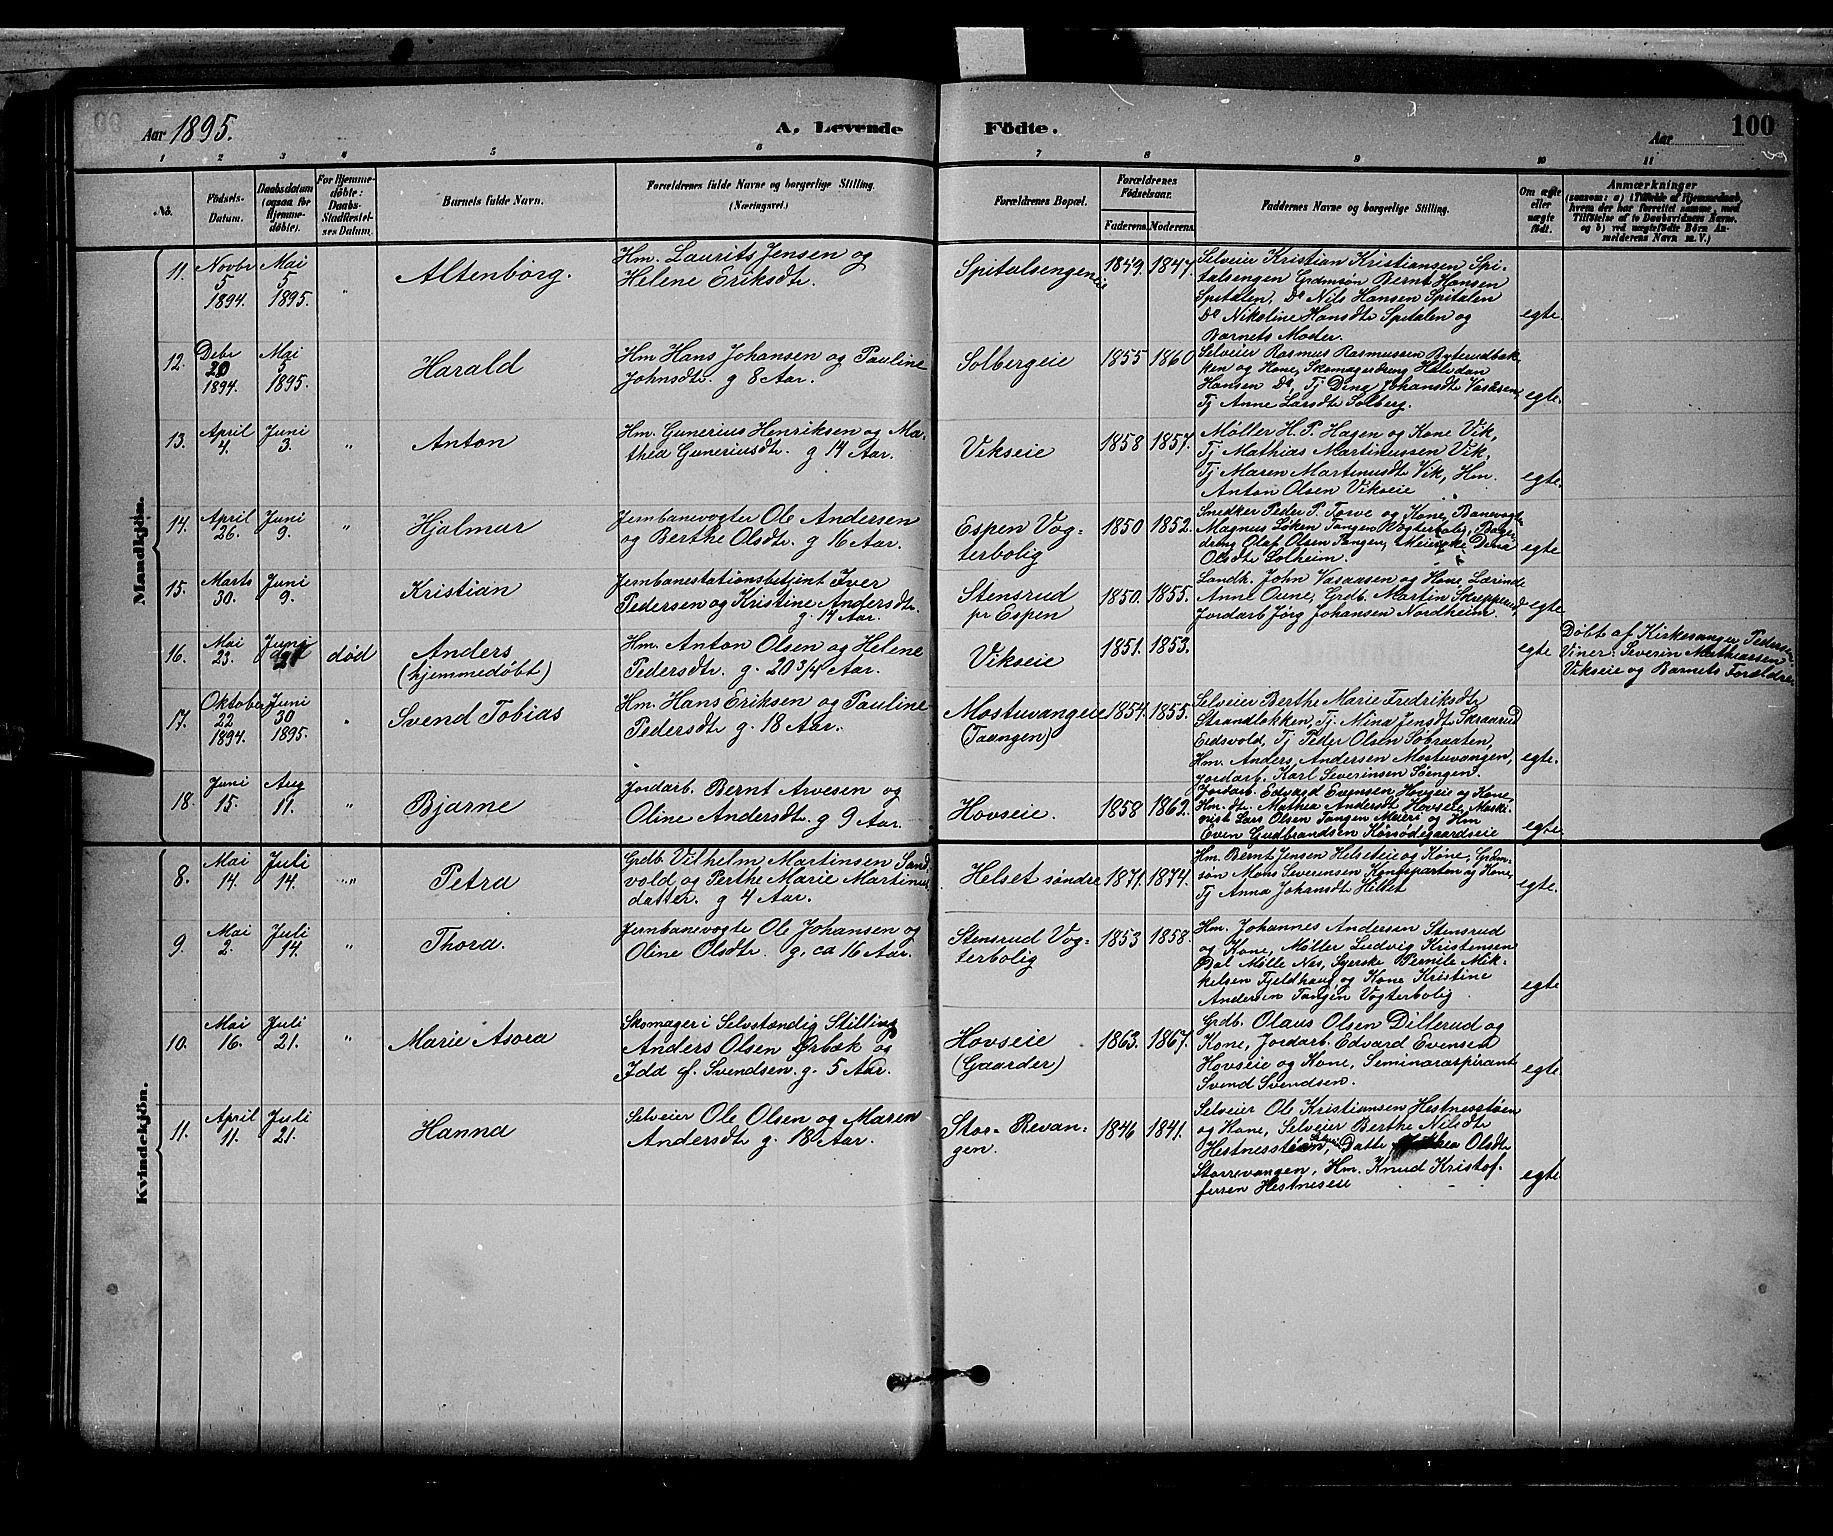 Aar 1895.
A. Levende
Fødte.
Aar
100
1 2 3 4 5 6 7 8 9 10 11
No.
Fødsels-Datum.
Daabsdatum (ogsaa for Hjemmedøbte).
For Hjemmedøbte: Daabs-Stadfæstelses Datum.
Barnets fulde Navn.
Forældrenes fulde Navne og borgerlige Stilling. (Næringsvei.)
Forældrenes Bopæl.
Forældrenes Fødselsaar.
Faderens. Moderens.
Faddernes Navne og borgerlige Stilling.
Om ægte eller uægte født.
Anmærkninger
(saasom: a) i Tilfælde af Hjemmedaab,
hvem der har forrettet samme, med
Tilføielse af to Daabsvidners Navne,
og b) ved uægtefødte Børn An-
melderens Navn m. V.)
Mandkjøn.
11. Novbr 5 1894. Mai 5 1895. " Altenborg.
Hm. Laurits Jensen og
Helene Eriksdtr.
Spitalsengeneie 1849. 1847.
Selveier Kristian Kristiansen Spi-
talsengen Grdmsøn Bernt Hansen
Spitalen, Do Nils Hansen Spitalen
Do Nikoline Hansdtr Spitalen og
Barnets Moder.
egte.
12. Debr 20 1894. Mai 5 1895. Harald
Hm Hans Johansen og Pauline
Johnsdtr. g 8 Aar.
Solbergeie 1855 1860
Selveier Rasmus Rasmussen Byterudbak-
ken og Kone, Skomagerdreng Halvdan
Hansen Do, Tj Dina Johansdtr Vasaasen,
Tj Anne Larsdtr Solberg.
egte.
13. April 4. Juni 3. " Anton
Hm. Gunerius Henriksen og Ma-
thea Guneriusdtr. g 14 Aar.
Vikseie 1858 1857.
Møller H. P. Hagen og Kone Vik,
Tj Mathias Martinussen Vik,
Tj Maren Martinusdtr Vik, Hm.
Anton Olsen Vikseie
egte.
14. April 26. Juni 9. " Hjalmar
Jernbanevogter Ole Andersen
og Berthe Olsdtr. g 16 Aar.
Espen Vog-
terbolig
1850 1852.
Smedker Peder P. Torve og Kone, Banevogter
Magnus Løken Tangen Vogterbolig, Bager
dreng Olaf Olsen Tangen, Meierske Dina
Olsdtr Solheim.
egte
15. Marts 30. Juni 9. Kristian
Jernbanestationsbetjent Iver
Pedersen og Kristine Andersdtr.
g. 14 Aar.
Stensrud
pr Espen
1850. 1855.
Landh. John Vasaasen og Kone, Lærinde
Anne Oune, Grdb. Martin Skrepperud,
Jordarb Jørg Johansen Nordheim.
egte
16. Mai 23. Juni død Anders
(hjemmedøbt)
Hm. Anton Olsen og Helene
Pedersdtr. g. 20 3/4 Aar.
Vikseie 1851. 1853.
egte
Døbt af Kirkesanger Pedersen
Viner: Severin Mathiassen
Vikseie og Barnets Forældre.
17. Oktober 22 1894. Juni 30 1895. " Svend Tobias
Hm. Hans Eriksen og Pauline
Pedersdtr g. 18 Aar.
Mostuvangeie
(Taangen)
1854. 1855.
Selveier Berthe Marie Fredriksdtr
Strandløkken, Tj. Mina Jensdtr Skraarud
Eidsvold, Tj Peder Olsen Søbraaten,
Hm. Anders Andersen Mostuvangen,
Jordarb. Karl Severinsen Søengen.
egte.
18. Juni 15. Aug 11. " Bjarne
Jordarb. Bernt Arvesen og
Oline Andersdtr. g 9 Aar.
Hovseie. 1858 1862.
Jordarb. Edvard Evensen Hovseie og Kone,
Hm. dtr. Mathea Andersdtr Hovseie, Maski-
nist Lars Olsen Tangen Meieri og Hm
Even Gudbrandsen Korsødegaardseie
egte.
Kvindekjøn.
8. Mai 14. Juli 14. " Petra
Grdb. Vilhelm Martinsen Sand
vold og Berthe Marie Martinus
datter. g 4 Aar.
Helset søndre 1871. 1874.
Hm. Bernt Jensen Helseteie og Kone, Grdm-
søn Mons Severinsen Kongsparten og Kone,
Tj Anna Johansdtr Helset
egte.
9. Mai 2. Juli 14. " Thora.
Jernbanevogter Ole Johansen og
Oline Olsdtr. g. ca 16 Aar.
Stensrud Vog-
terbolig
1853 1858.
Hm. Johannes Andersen Stensrud
og Kone, Møller Ludvig Kristensen
Dal Mølle Nes, Syerske Pernile Mik-
kelsen Fjeldhaug, og Kone Kristine
Andersen Tangen Vogterbolig.
egte
10. Mai 16. Juli 21. " Marie Asora
Skomager i Selvstændig Stilling
Anders Olsen Ørbæk og
Idd f. Svendsen. g. 5 Aar.
Hovseie
(Gaarder)
1863. 1867.
Grdb. Olaus Olsen Dillerud og
Kone, Jordarb. Edvard Evensen
Hovseie og Kone, Seminaraspirant
Svend Svendsen.
egte.
11. April 11. Juli 21. Hanna
Selveier Ole Olsen og Maren
Andersdtr g. 18 Aar.
Stor-Revan-
gen.
1846 1841.
Selveier Ole Kristiansen Hestnesstøen
og Kone, Selveier Berthe Nilsdtr
Hestnesstøen, Datter Olsdtr
Storrevangen, Hm. Knud Kristof-
fersen Hestneseie
egte.